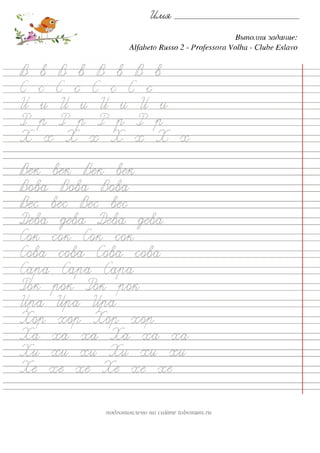 Имя
Выполни задание:
Alfabeto Russo 2 - Professora Volha - Clube Eslavo
В в В в В в В в
С с С с С с С с
И и И и И и И и
Р р Р р Р р Р р
Х х Х х Х х Х х
Век век Век век
Вова Вова Вова
Вес вес Вес вес
Дева дева Дева дева
Сок сок Сок сок
Сова сова Сова сова
Сара Сара Сара
Рок рок Рок рок
Ира Ира Ира
Хор хор Хор хор
Ха ха ха Ха ха ха
Хи хи хи Хи хи хи
Хе хе хе Хе хе хе
подготовлено на сайте tobemum.ru